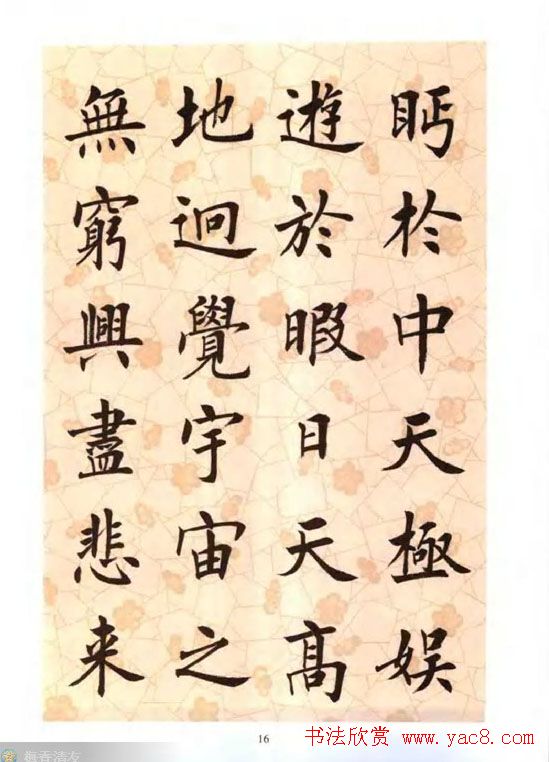 眄於中天極娱
遊於暇日天髙
地迥覺宇宙之
無窮興盡悲来
16
书法欣赏 www.yac8.com
梅香清友